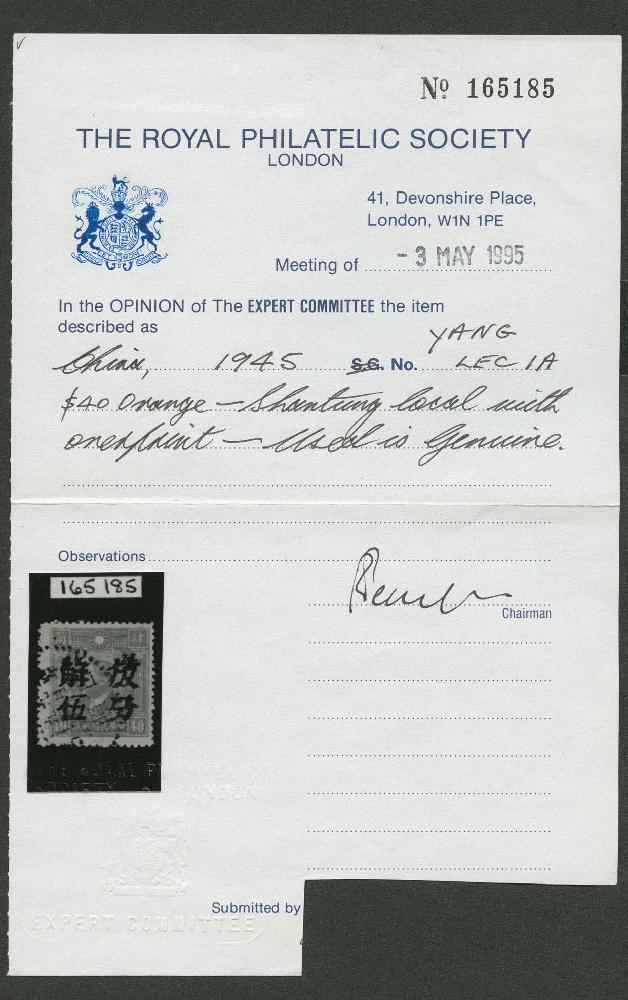 Nº 165185
THE ROYAL PHILATELIC SOCIETY
LONDON
41, Devonshire Place,
London, W1N 1PE
Meeting of - 3 MAY 1995
In the OPINION of The EXPERT COMMITTEE the item
described as
YANG
China, 1945 S.G. No. LEC 1A
$40 Orange - Shantung local with
overprint - Used is Genuine.
Observations
165185
Chairman
40
Submitted by
EXPERT COMMITTEE